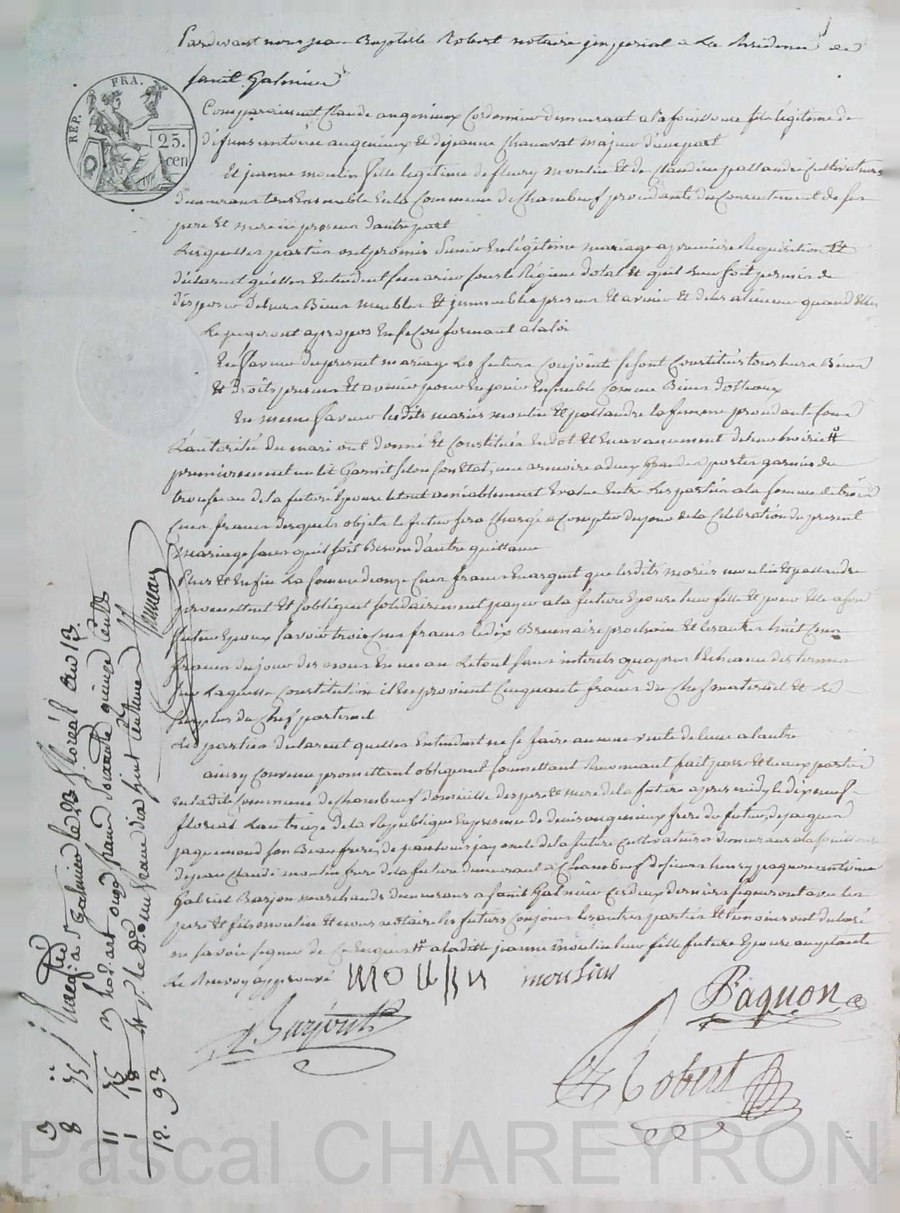 Pardevant nous jean Baptiste Robert notaire jmperial a La Residence de
sanit Galmier
REP. FRA.
25. cen
Comparaissent Claude angenieux Cordonnier demeurant a la fouillouse fils légitime de
défunt antoine angenieux Et de jeanne Chanavat majeur d'une part
Et jeanne moulin fille legitime de fleury moulin et de Claudine pallandre Cultivateurs
demeurants tous Ensemble En la Commune de Chambeuf procedante du Consentement de ses
pere Et mere ici presens d'autre part
Lesquelles parties ont promis s'unir En légitime mariage a premiere Requisition Et
déclarent qu'elles Entendent se marier sous le Régime dotal Et qu'il leur soit permis de
disposer de leurs Biens meubles Et jmmeubles presens Et avenir Et de les aliener quand Elles
Le jugeront a propos En se Conformant a la loi
En faveur du present mariage Les futurs Conjoints se sont Constitués tous leurs Biens
Et droits presens Et avenir pour En jouir Ensemble Comme Biens dotaux
En meme faveur lesdits mariés moulin Et pallandre la femme procedante sous
L'autorité du mari ont donné Et Constitué En dot Et En avancement d'
premierement un lit Garnit selon son Etat, une armoire a deux Grandes portes garnies du
trousseau de la future Epouse le tout amiablement Evalué Entre Les parties a la somme de trois
Cens francs desquels objets le futur sera Chargé a Compter du jour de la Celebration du present
mariage sans qu'il soit Besoin d'autre quittance
Plus Et Enfin La somme de onze Cens francs En argent que lesdits mariés moulin Et pallandre
promettent Et s'obligent solidairement payer a la future Epouse leur fille Et pour Elle a son
futur Epoux savoir trois Cens francs le dix Brumaire prochain Et les autres huit Cens
francs du jour des En un an Le tout sans interets qu'apres l'Echeance des termes
sur Laquelle Constitution il En provient Cinquante francs du Chef maternel Et Le
surplus du Chef paternel
Les parties declarent quelles Entendent ne se faire aucune de l'une a l'autre
ainsy Convenu promettant obligeant soumettant Renonçant fait passé Et Leu aux parties
En ladite Commune de Chambeuf domicille des pere Et mere de la future apres midy le dix neuf
floreal L'an treize de la Republique En presence de denis angenieux frere du futur, de jacques
jaquemond son Beau frere, de oncle de la future Cultivateurs demeurans a la fouillouse
de jean Claude moulin frere de la future demeurant a Chambeuf de sieurs henry paquon Et antoine
Gabriel Barjon marchands demeurans a sanit Galmier Ces deux derniers signeront avec les
pere Et fils moulin Et nous notaire les futurs Conjoins les autres parties Et temoins ont declaré
ne savoir signer de Ce Enquis # a ladite jeanne moulin leur fille future Epouse acceptante
Le Renvoy approuvé
moulin
moulin
Paquon
Barjon
Robert
Enreg: a St Galmier le 23 floréal an 13
onze francs soixante quinze centes
pr. le 10e un franc dix huit centimes
3
8 75
11 75
1 18
12. 93
Pascal CHAREYRON